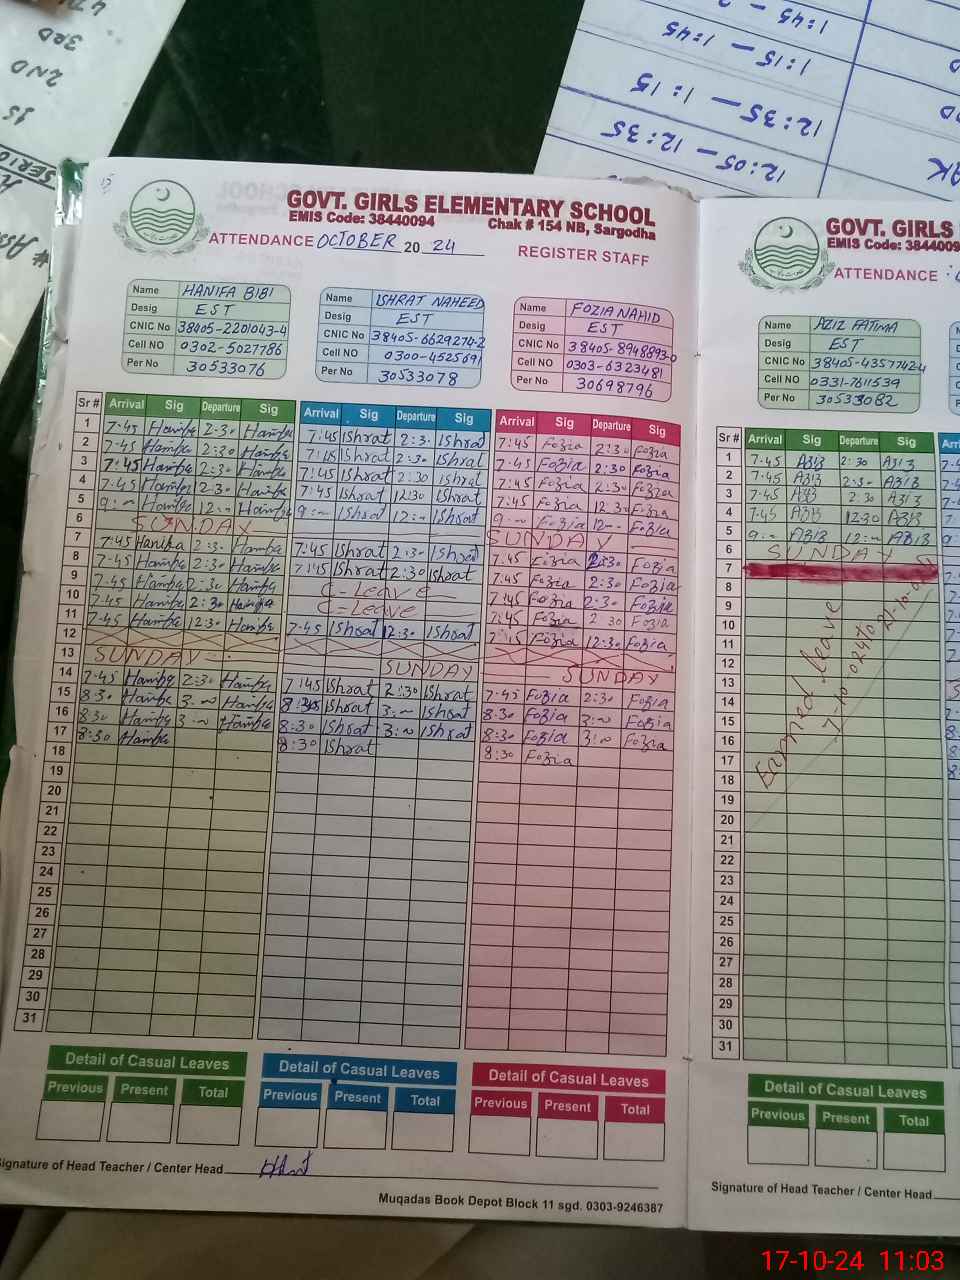 GOVT. GIRLS ELEMENTARY SCHOOL
EMIS Code: 38440094 Chak # 154 NB, Sargodha
ATTENDANCE OCTOBER 20 24 REGISTER STAFF
Name HANIFA BIBI
Desig EST
CNIC No 38405-2201043-4
Cell NO 0302-5027786
Per No 30533076
Name ISHRAT NAHEED
Desig EST
CNIC No 38405-6629274-2
Cell NO 0300-4525691
Per No 30533078
Name FOZIA NAHID
Desig EST
CNIC No 38405-8948893-0
Cell NO 0303-6323481
Per No 30698796
Sr # Arrival Sig Departure Sig Arrival Sig Departure Sig Arrival Sig Departure Sig
1 7-45 Hanifa 2-30 Hanifa 7:45 Ishrat 2:3. Ishrat 7:45 Fozia 2:30 Fozia
2 7-45 Hanifa 2:30 Hanifa 7:45 Ishrat 2:30 Ishrat 7-45 Fozia 2:30 Fozia
3 7:45 Hanifa 2:30 Hanifa 7:45 Ishrat 2:30 Ishrat 7:45 Fozia 2:30 Fozia
4 7-45 Hanifa 2-30 Hanifa 7:45 Ishrat 12:30 Ishrat 7:45 Fozia 12:30 Fozia
5 9:~ Hanifa 12:~ Hanifa 9:~ Ishrat 12:~ Ishrat 9:~ Fozia 12:~ Fozia
6 SUNDAY SUNDAY
7 7:45 Hanifa 2:30 Hanifa 7:45 Ishrat 2:30 Ishrat 7:45 Fozia 2:30 Fozia
8 7-45 Hanifa 2:30 Hanifa 7:45 Ishrat 2:30 Ishrat 7:45 Fozia 2:30 Fozia
9 7-45 Hanifa 2:30 Hanifa C-Leave 7:45 Fozia 2:30 Fozia
10 7-45 Hanifa 2:30 Hanifa C-Leave 7:45 Fozia 2:30 Fozia
11 7-45 Hanifa 12:30 Hanifa 7-45 Ishrat 12:30 Ishrat 7:45 Fozia 12:30 Fozia
12
13 SUNDAY SUNDAY SUNDAY
14 7-45 Hanifa 2:30 Hanifa 7:45 Ishrat 2:30 Ishrat 7-45 Fozia 2:30 Fozia
15 8:30 Hanifa 3:~ Hanifa 8:30 Ishrat 3:~ Ishrat 8:30 Fozia 3:~ Fozia
16 8:30 Hanifa 3:~ Hanifa 8:30 Ishrat 3:~ Ishrat 8:30 Fozia 3:~ Fozia
17 8:30 Hanifa 8:30 Ishrat 8:30 Fozia
18
19
20
21
22
23
24
25
26
27
28
29
30
31
Detail of Casual Leaves Detail of Casual Leaves Detail of Casual Leaves
Previous Present Total Previous Present Total Previous Present Total
Signature of Head Teacher / Center Head
Muqadas Book Depot Block 11 sgd. 0303-9246387
GOVT. GIRLS
EMIS Code: 3844009
ATTENDANCE
Name AZIZ FATIMA
Desig EST
CNIC No 38405-4357742-4
Cell NO 0331-7611539
Per No 30533082
Sr # Arrival Sig Departure Sig Arri
1 7-45 2:30
2 7-45 2:30
3 7-45 2:30
4 7-45 12:30
5 9:~ 12:~
6 SUNDAY
7
8
9
10
11
12
13
14
15
16
17
18
19
20
21
22
23
24
25
26
27
28
29
30
31
Earned Leave
Detail of Casual Leaves
Previous Present Total
Signature of Head Teacher / Center Head
1:15 – 1:45
12:35 – 1:15
12:05 – 12:35
3RD
2ND
17-10-24 11:03